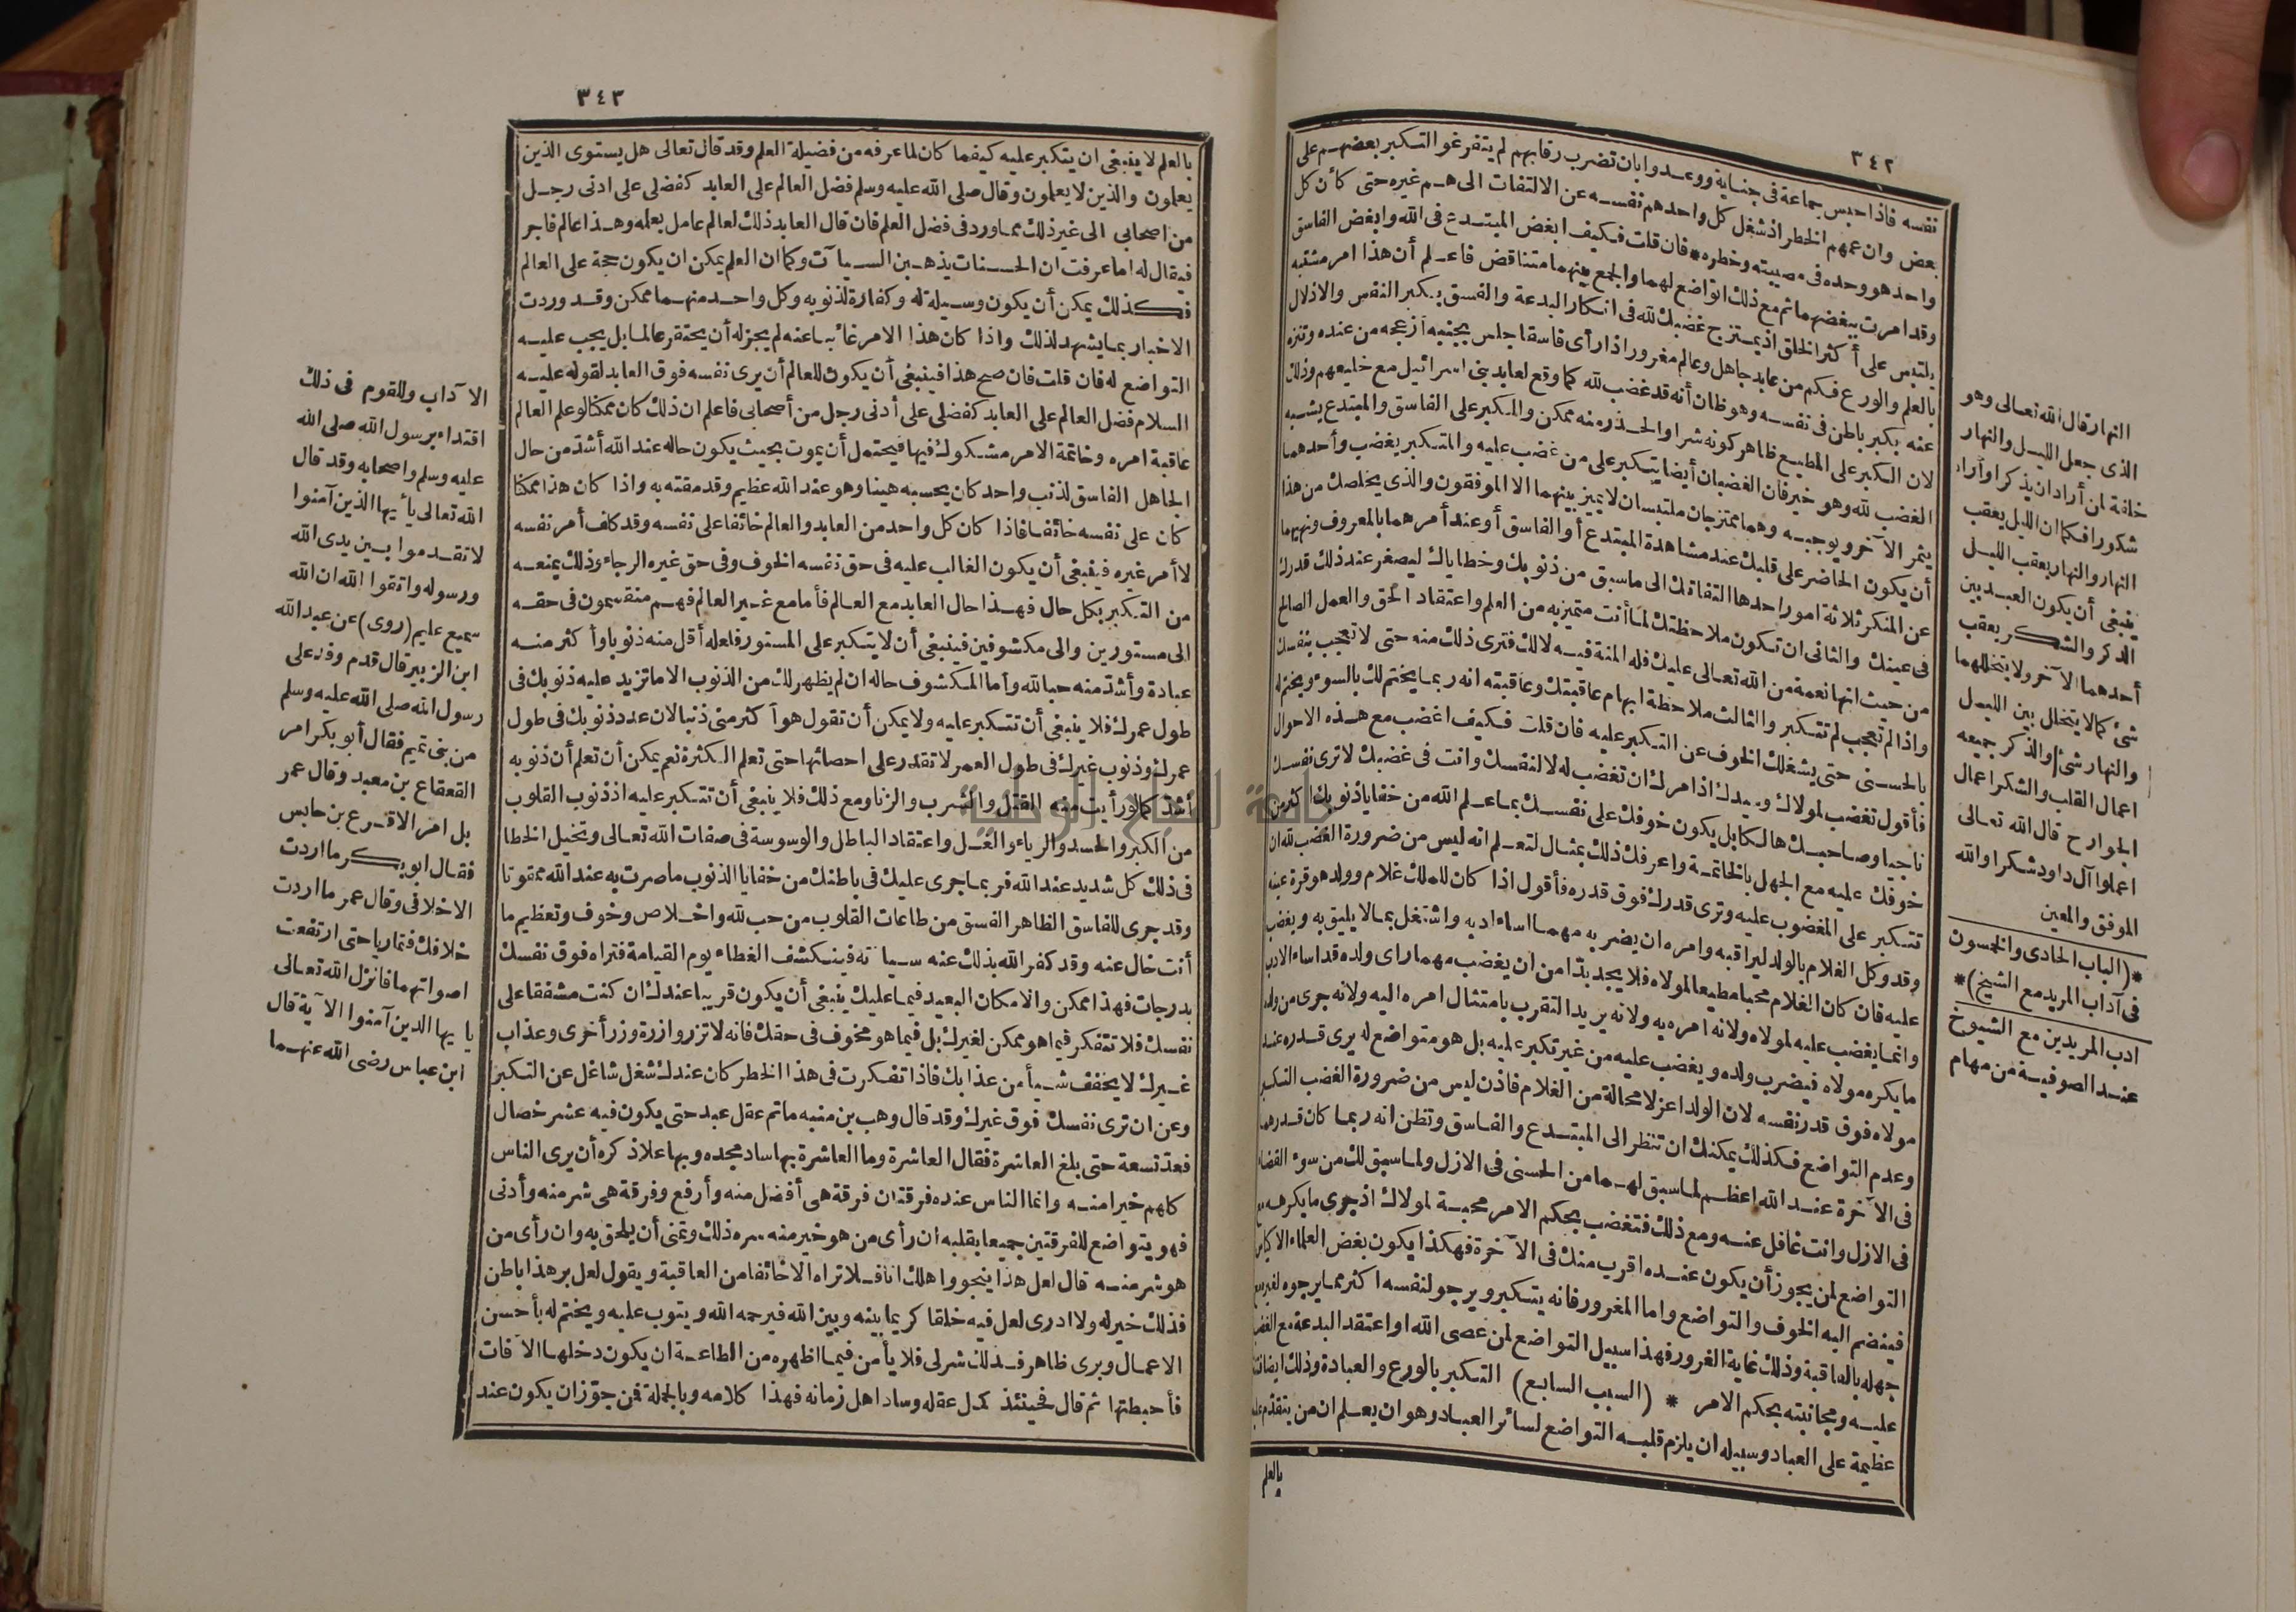 ٣٤٢
نفسه فاذا حبس جماعة فى جناية ووعدوا بان تضرب رقابهم لم يتفرغوا لتكبر بعضهم على
بعض وان عمهم الخطر اذ شغل كل واحد هم نفسه عن الالتفات الى هم غيره حتى كأن كل
واحد هو وحده فى مصيبته وخطره * فان قلت فكيف ابغض المبتدع فى الله وابغض الفاسق
وقد امرت ببغضهما ثم مع ذلك اتواضع لهما والجمع بينهما متناقض فاعلم أن هذا امر مشتبه
يلتبس على أكثر الخلق اذ يمتزج غضبك لله فى انكار البدعة والفسق بكبر النفس والاذلال
بالعلم والورع فكم من عابد جاهل وعالم مغرور اذا رأى فاسقا جلس بجنبه أزعجه من عنده وتنزه
عنه بكبر باطن فى نفسه وهو ظان أنه قد غضب لله كما وقع لعابد بنى اسرائيل مع خليعهم وذلك
لان الكبر على المطيع ظاهر كونه شرا والحذر منه ممكن والكبر على الفاسق والمبتدع يشبه
الغضب لله وهو خير فان الغضبان أيضا يتكبر على من غضب عليه والمتكبر يغضب وأحدهما
يثمر الآخر ويوجبه وهما ممتزجان ملتبسان لا يميز بينهما الا الموفقون والذى يخلصك من هذا
أن يكون الحاضر على قلبك عند مشاهدة المبتدع أو الفاسق أو عند أمرهما بالمعروف ونهيهما
عن المنكر ثلاثة امور احدها التفاتك الى ما سبق من ذنوبك وخطاياك ليصغر عند ذلك قدرك
فى عينك والثانى ان تكون ملاحظتك لما أنت متميز به من العلم واعتقاد الحق والعمل الصالح
من حيث انها نعمة من الله تعالى عليك فله المنة فيه لا لك فترى ذلك منه حتى لا تعجب بنفسك
واذا لم تعجب لم تتكبر والثالث ملاحظة ابهام عاقبتك وعاقبته انه ربما يختم لك بالسوء ويختم له
بالحسنى حتى يشغلك الخوف عن التكبر عليه فان قلت فكيف اغضب مع هذه الاحوال
فأقول تغضب لمولاك وسيدك اذ امرك ان تغضب له لا لنفسك وانت فى غضبك لا ترى نفسك
ناجيا وصاحبك هالكا بل يكون خوفك على نفسك بما علم الله من خفايا ذنوبك اكثر من
خوفك عليه مع الجهل بالخاتمة واعرفك ذلك بمثال لتعلم انه ليس من ضرورة الغضب لله ان
تتكبر على المغضوب عليه وترى قدرك فوق قدره فأقول اذا كان للملك غلام وولد هو قرة عينه
وقد وكل الغلام بالولد ليراقبه وامره ان يضربه مهما اساء ادبه واشتغل بما لا يليق به ويغضب
عليه فان كان الغلام محبا مطيعا لمولاه فلا يجد بدّا من ان يغضب مهما رأى ولده قد اساء الادب
وانما يغضب عليه لمولاه ولانه امره به ولانه يريد التقرب بامتثال امره اليه ولانه جرى من ولده
ما يكره مولاه فيضرب ولده ويغضب عليه من غير تكبر عليه بل هو متواضع له يرى قدره عند
مولاه فوق قدر نفسه لان الولد اعز لا محالة من الغلام فاذن ليس من ضرورة الغضب التكبر
وعدم التواضع فكذلك يمكنك ان تنظر الى المبتدع والفاسق وتظن انه ربما كان قدرهما
فى الآخرة عند الله اعظم لما سبق لهما من الحسنى فى الازل ولما سبق لك من سوء القضاء
فى الازل وانت غافل عنه ومع ذلك فتغضب بحكم الامر محبة لمولاك اذ جرى ما يكرهه مع
التواضع لمن يجوز أن يكون عنده اقرب منك فى الآخرة فهكذا يكون بغض العلماء الاكياس
فينضم اليه الخوف والتواضع واما المغرور فانه يتكبر ويرجو لنفسه اكثر مما يرجوه لغيره مع
جهله بالعاقبة وذلك غاية الغرور فهذا سبيل التواضع لمن عصى الله او اعتقد البدعة مع الغضب
عليه ومجانبته بحكم الامر * (السبب السابع) التكبر بالورع والعبادة وذلك ايضا فتنة
عظيمة على العباد وسبيله ان يلزم قلبه التواضع لسائر العباد وهو ان يعلم ان من يتقدّم عليه
بالعلم
النهار قال الله تعالى وهو
الذى جعل الليل والنهار
خلفة لمن أراد ان يذكر او أراد
شكورا فكما ان الليل يعقب
النهار والنهار يعقب الليل
ينبغى أن يكون العبد بين
الذكر والشكر يعقب
أحدهما الآخر ولا يتخللهما
شئ كما لا يتخلل بين الليل
والنهار شئ والذكر جميعه
اعمال القلب والشكر اعمال
الجوارح قال الله تعالى
اعملوا آل داود شكرا والله
الموفق والمعين
*(الباب الحادى والخمسون
فى آداب المريد مع الشيخ)*
ادب المريدين مع الشيوخ
عند الصوفية من مهام
٣٤٣
بالعلم لا ينبغى ان يتكبر عليه كيفما كان لما عرفه من فضيلة العلم وقد قال تعالى هل يستوى الذين
يعلمون والذين لا يعلمون وقال صلى الله عليه وسلم فضل العالم على العابد كفضلى على ادنى رجل
من اصحابى الى غير ذلك مما ورد فى فضل العلم فان قال العابد ذلك لعالم عامل بعلمه وهذا عالم فاجر
فيقال له اما عرفت ان الحسنات يذهبن السيآت وكما ان العلم يمكن ان يكون حجة على العالم
فكذلك يمكن أن يكون وسيلة له وكفارة لذنوبه وكل واحد منهما ممكن وقد وردت
الاخبار بما يشهد لذلك واذا كان هذا الامر غائبا عنه لم يجز له أن يحتقر عالما بل يجب عليه
التواضع له فان قلت فان صح هذا فينبغى أن يكون للعالم أن يرى نفسه فوق العابد لقوله عليه
السلام فضل العالم على العابد كفضلى على أدنى رجل من أصحابى فاعلم ان ذلك كان ممكنا لو علم العالم
عاقبة امره وخاتمة الامر مشكوك فيها فيحتمل أن يموت بحيث يكون حاله عند الله أشدّ من حال
الجاهل الفاسق لذنب واحد كان يحسبه هينا وهو عند الله عظيم وقد مقته به واذا كان هذا ممكنا
كان على نفسه خائفا فاذا كان كل واحد من العابد والعالم خائفا على نفسه وقد كلف أمر نفسه
لا أمر غيره فينبغى أن يكون الغالب عليه فى حق نفسه الخوف وفى حق غيره الرجاء وذلك يمنعه
من التكبر بكل حال فهذا حال العابد مع العالم فأما مع غير العالم فهم منقسمون فى حقه
الى مستورين والى مكشوفين فينبغى أن لا يتكبر على المستور فلعله أقل منه ذنوبا وأكثر منه
عبادة وأشدّ منه حبا لله وأما المكشوف حاله ان لم يظهر لك من الذنوب الا ما تزيد عليه ذنوبك فى
طول عمرك فلا ينبغى أن تتكبر عليه ولا يمكن أن تقول هو أكثر منى ذنبا لان عدد ذنوبك فى طول
عمرك وذنوب غيرك فى طول العمر لا تقدر على احصائها حتى تعلم الكثرة نعم يمكن أن تعلم أن ذنوبه
أشدّ كما لو رأيت منه القتل والشرب والزنا ومع ذلك فلا ينبغى أن تتكبر عليه اذ ذنوب القلوب
من الكبر والحسد والرياء والغل واعتقاد الباطل والوسوسة فى صفات الله تعالى وتخيل الخطا
فى ذلك كل شديد عند الله فربما جرى عليك فى باطنك من خفايا الذنوب ما صرت به عند الله ممقوتا
وقد جرى للفاسق الظاهر الفسق من طاعات القلوب من حب لله واخلاص وخوف وتعظيم ما
أنت خال عنه وقد كفر الله بذلك عنه سيآته فينكشف الغطاء يوم القيامة فتراه فوق نفسك
بدرجات فهذا ممكن والامكان البعيد فيما عليك ينبغى أن يكون قريبا عندك ان كنت مشفقا على
نفسك فلا تتفكر فيما هو ممكن لغيرك بل فيما هو مخوف فى حقك فانه لا تزر وازرة وزر أخرى وعذاب
غيرك لا يخفف شيأ من عذابك فاذا تفكرت فى هذا الخطر كان عندك شغل شاغل عن التكبر
وعن ان ترى نفسك فوق غيرك وقد قال وهب بن منبه ما تم عقل عبد حتى يكون فيه عشر خصال
فعدّ تسعة حتى بلغ العاشرة فقال العاشرة وما العاشرة بها ساد مجده وبها علا ذكره أن يرى الناس
كلهم خيرا منه وانما الناس عنده فرقتان فرقة هى أفضل منه وأرفع وفرقة هى شر منه وأدنى
فهو يتواضع للفرقتين جميعا بقلبه ان رأى من هو خير منه سره ذلك وتمنى أن يلحق به وان رأى من
هو شر منه قال لعل هذا ينجو واهلك انا فلا تراه الا خائفا من العاقبة ويقول لعل بر هذا باطن
فذلك خير له ولا ادرى لعل فيه خلقا كريما بينه وبين الله فيرحمه الله ويتوب عليه ويختم له بأحسن
الاعمال وبرى ظاهر فذلك شر لى فلا يأمن فيما اظهره من الطاعة ان يكون دخلها الآفات
فأحبطتها ثم قال فحينئذ كمل عقله وساد اهل زمانه فهذا كلامه وبالجملة فمن جوّز ان يكون عند
الآداب وللقوم فى ذلك
اقتداء برسول الله صلى الله
عليه وسلم واصحابه وقد قال
الله تعالى يأيها الذين آمنوا
لا تقدموا بين يدى الله
ورسوله واتقوا الله ان الله
سميع عليم (روى) عن عبد الله
ابن الزبير قال قدم وفد على
رسول الله صلى الله عليه وسلم
من بنى تميم فقال أبو بكر امر
القعقاع بن معبد وقال عمر
بل امر الاقرع بن حابس
فقال ابو بكر ما اردت
الا خلافى وقال عمر ما اردت
خلافك فتماريا حتى ارتفعت
اصواتهما فانزل الله تعالى
يا يها الذين آمنوا الآية قال
ابن عباس رضى الله عنهما